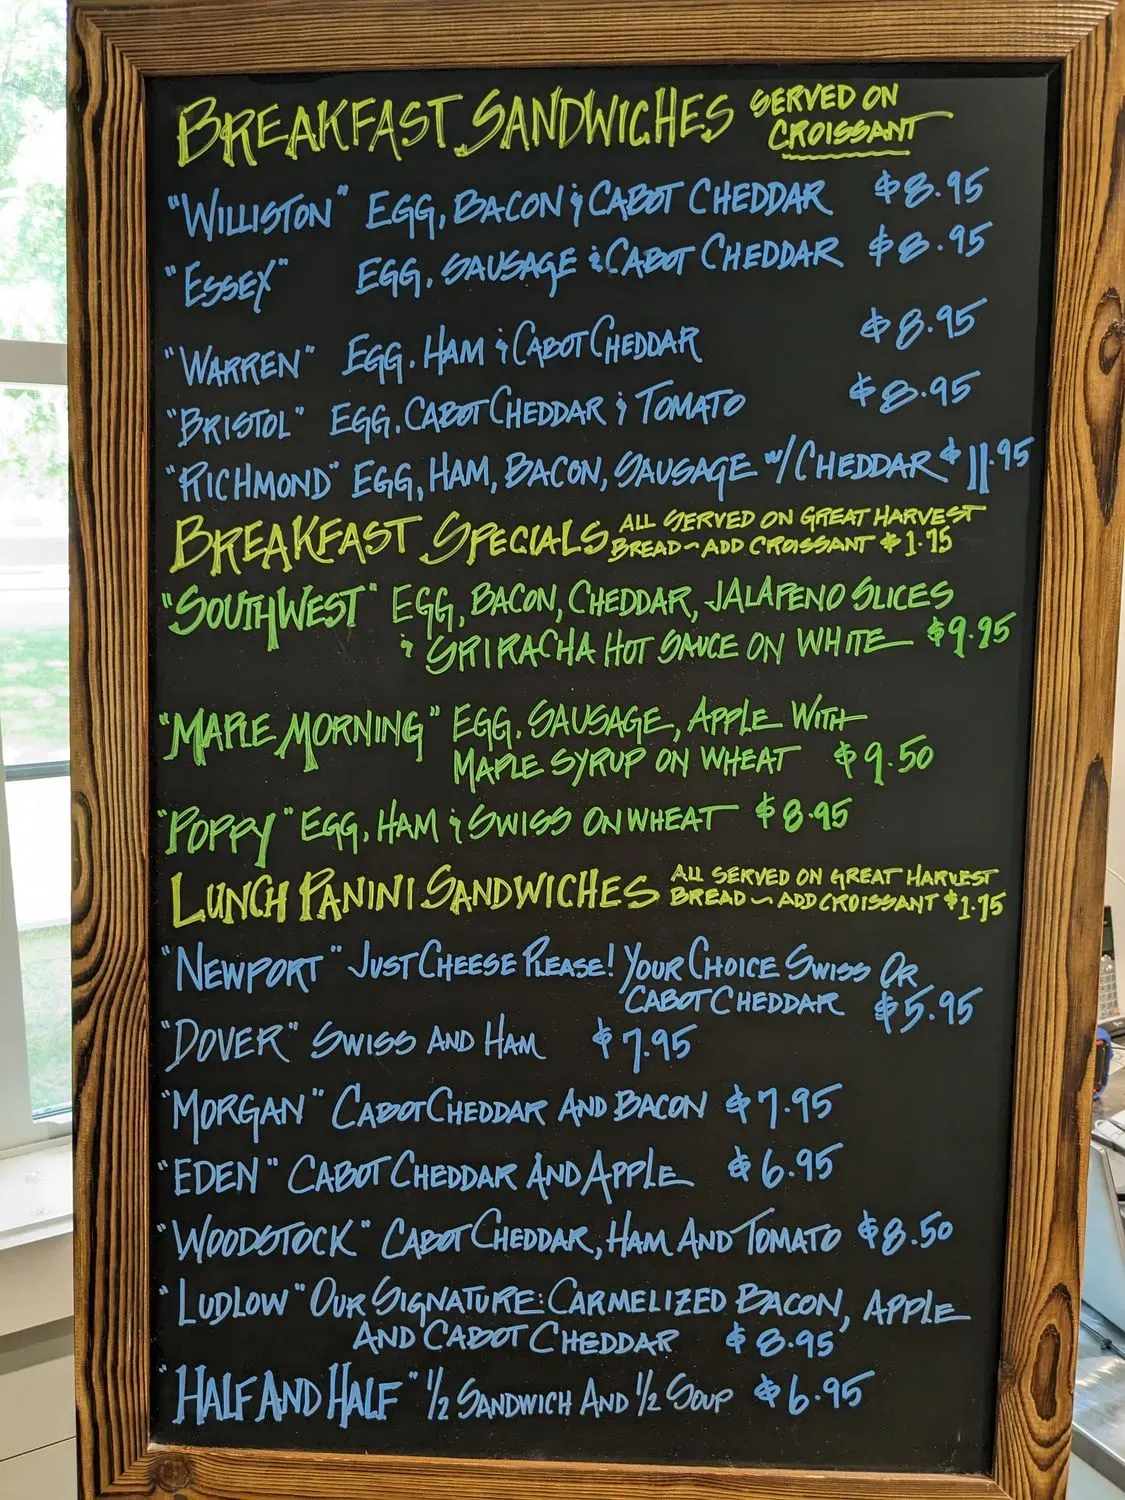 BREAKFAST SANDWICHES SERVED ON
CROISSANT
"WILLISTON" EGG, BACON & CABOT CHEDDAR $8.95
"ESSEX" EGG, SAUSAGE & CABOT CHEDDAR $8.95
"WARREN" EGG, HAM & CABOT CHEDDAR $8.95
"BRISTOL" EGG, CABOT CHEDDAR & TOMATO $8.95
"RICHMOND" EGG, HAM, BACON, SAUSAGE W/ CHEDDAR $11.95
BREAKFAST SPECIALS ALL SERVED ON GREAT HARVEST
BREAD ~ ADD CROISSANT $1.75
"SOUTHWEST" EGG, BACON, CHEDDAR, JALAPENO SLICES
& SRIRACHA HOT SAUCE ON WHITE $9.95
"MAPLE MORNING" EGG, SAUSAGE, APPLE WITH
MAPLE SYRUP ON WHEAT $9.50
"POPPY" EGG, HAM & SWISS ON WHEAT $8.95
LUNCH PANINI SANDWICHES ALL SERVED ON GREAT HARVEST
BREAD ~ ADD CROISSANT $1.75
"NEWPORT" JUST CHEESE PLEASE! YOUR CHOICE SWISS OR
CABOT CHEDDAR $5.95
"DOVER" SWISS AND HAM $7.95
"MORGAN" CABOT CHEDDAR AND BACON $7.95
"EDEN" CABOT CHEDDAR AND APPLE $6.95
"WOODSTOCK" CABOT CHEDDAR, HAM AND TOMATO $8.50
"LUDLOW" OUR SIGNATURE: CARMELIZED BACON, APPLE
AND CABOT CHEDDAR $8.95
"HALF AND HALF" 1/2 SANDWICH AND 1/2 SOUP $6.95